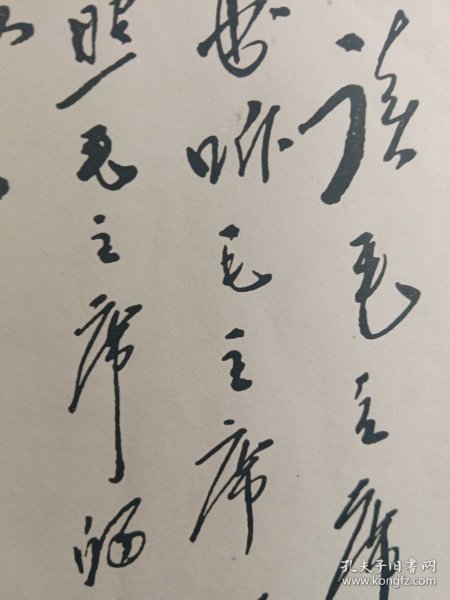 读毛主席
书听毛主席
照毛主席的
孔夫子旧书网
www.kongfz.com